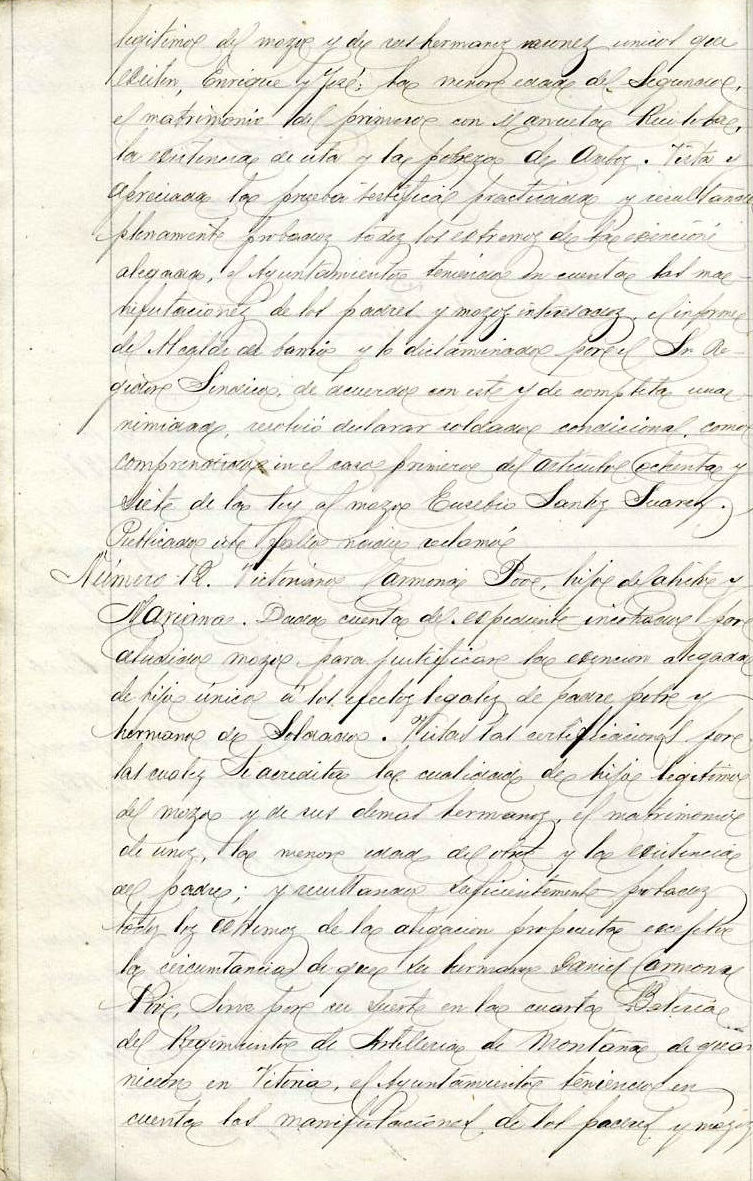 legitimo del mozo y de sus hermanos varones unicos que
existen, Enrique y José; la menor edad del Segundo,
el matrimonio del primero con Manuela
la existencia de esta y la pobreza de ambos. Vista y
apreciada la prueba testifical practicada y resultando
plenamente probados todos los estremos de la exención
alegada, el Ayuntamiento teniendo en cuenta las ma-
nifestaciones de los padres y mozos interesados, el informe
del Alcalde de barrio y lo dictaminado por el Sr. Re-
gidor Sindico, de acuerdo con este y de completa una-
nimidad, resolvió declarar soldado condicional, como
comprendido en el caso primero del artículo ochenta y
siete de la ley al mozo Eusebio Santos Suarez.
Publicado este fallo nadie reclamó
Número 12. Victoriano Carmona Poo, hijo de
Mariana. Dada cuenta del espediente incohado por
aludido mozo para justificar la exencion alegada
de hijo único á los efectos legales de padre pobre y
hermano de Soldado. Vistas las certificaciones por
las cuales se acredita la cualidad de hijo legitimo
del mozo y de sus demas hermanos, el matrimonio
de unos, la menor edad del otro y la existencia
del padre; y resultando suficientemente probados
todos los estremos de la alegacion propuesta excepto
la circunstancia de que su hermano Daniel Carmona
Poo, sirve por su suerte en la cuarta Bateria
del Regimiento de Artilleria de Montaña de guar
nición en Vitoria, el Ayuntamiento teniendo en
cuenta las manifestaciones de los padres y mozos